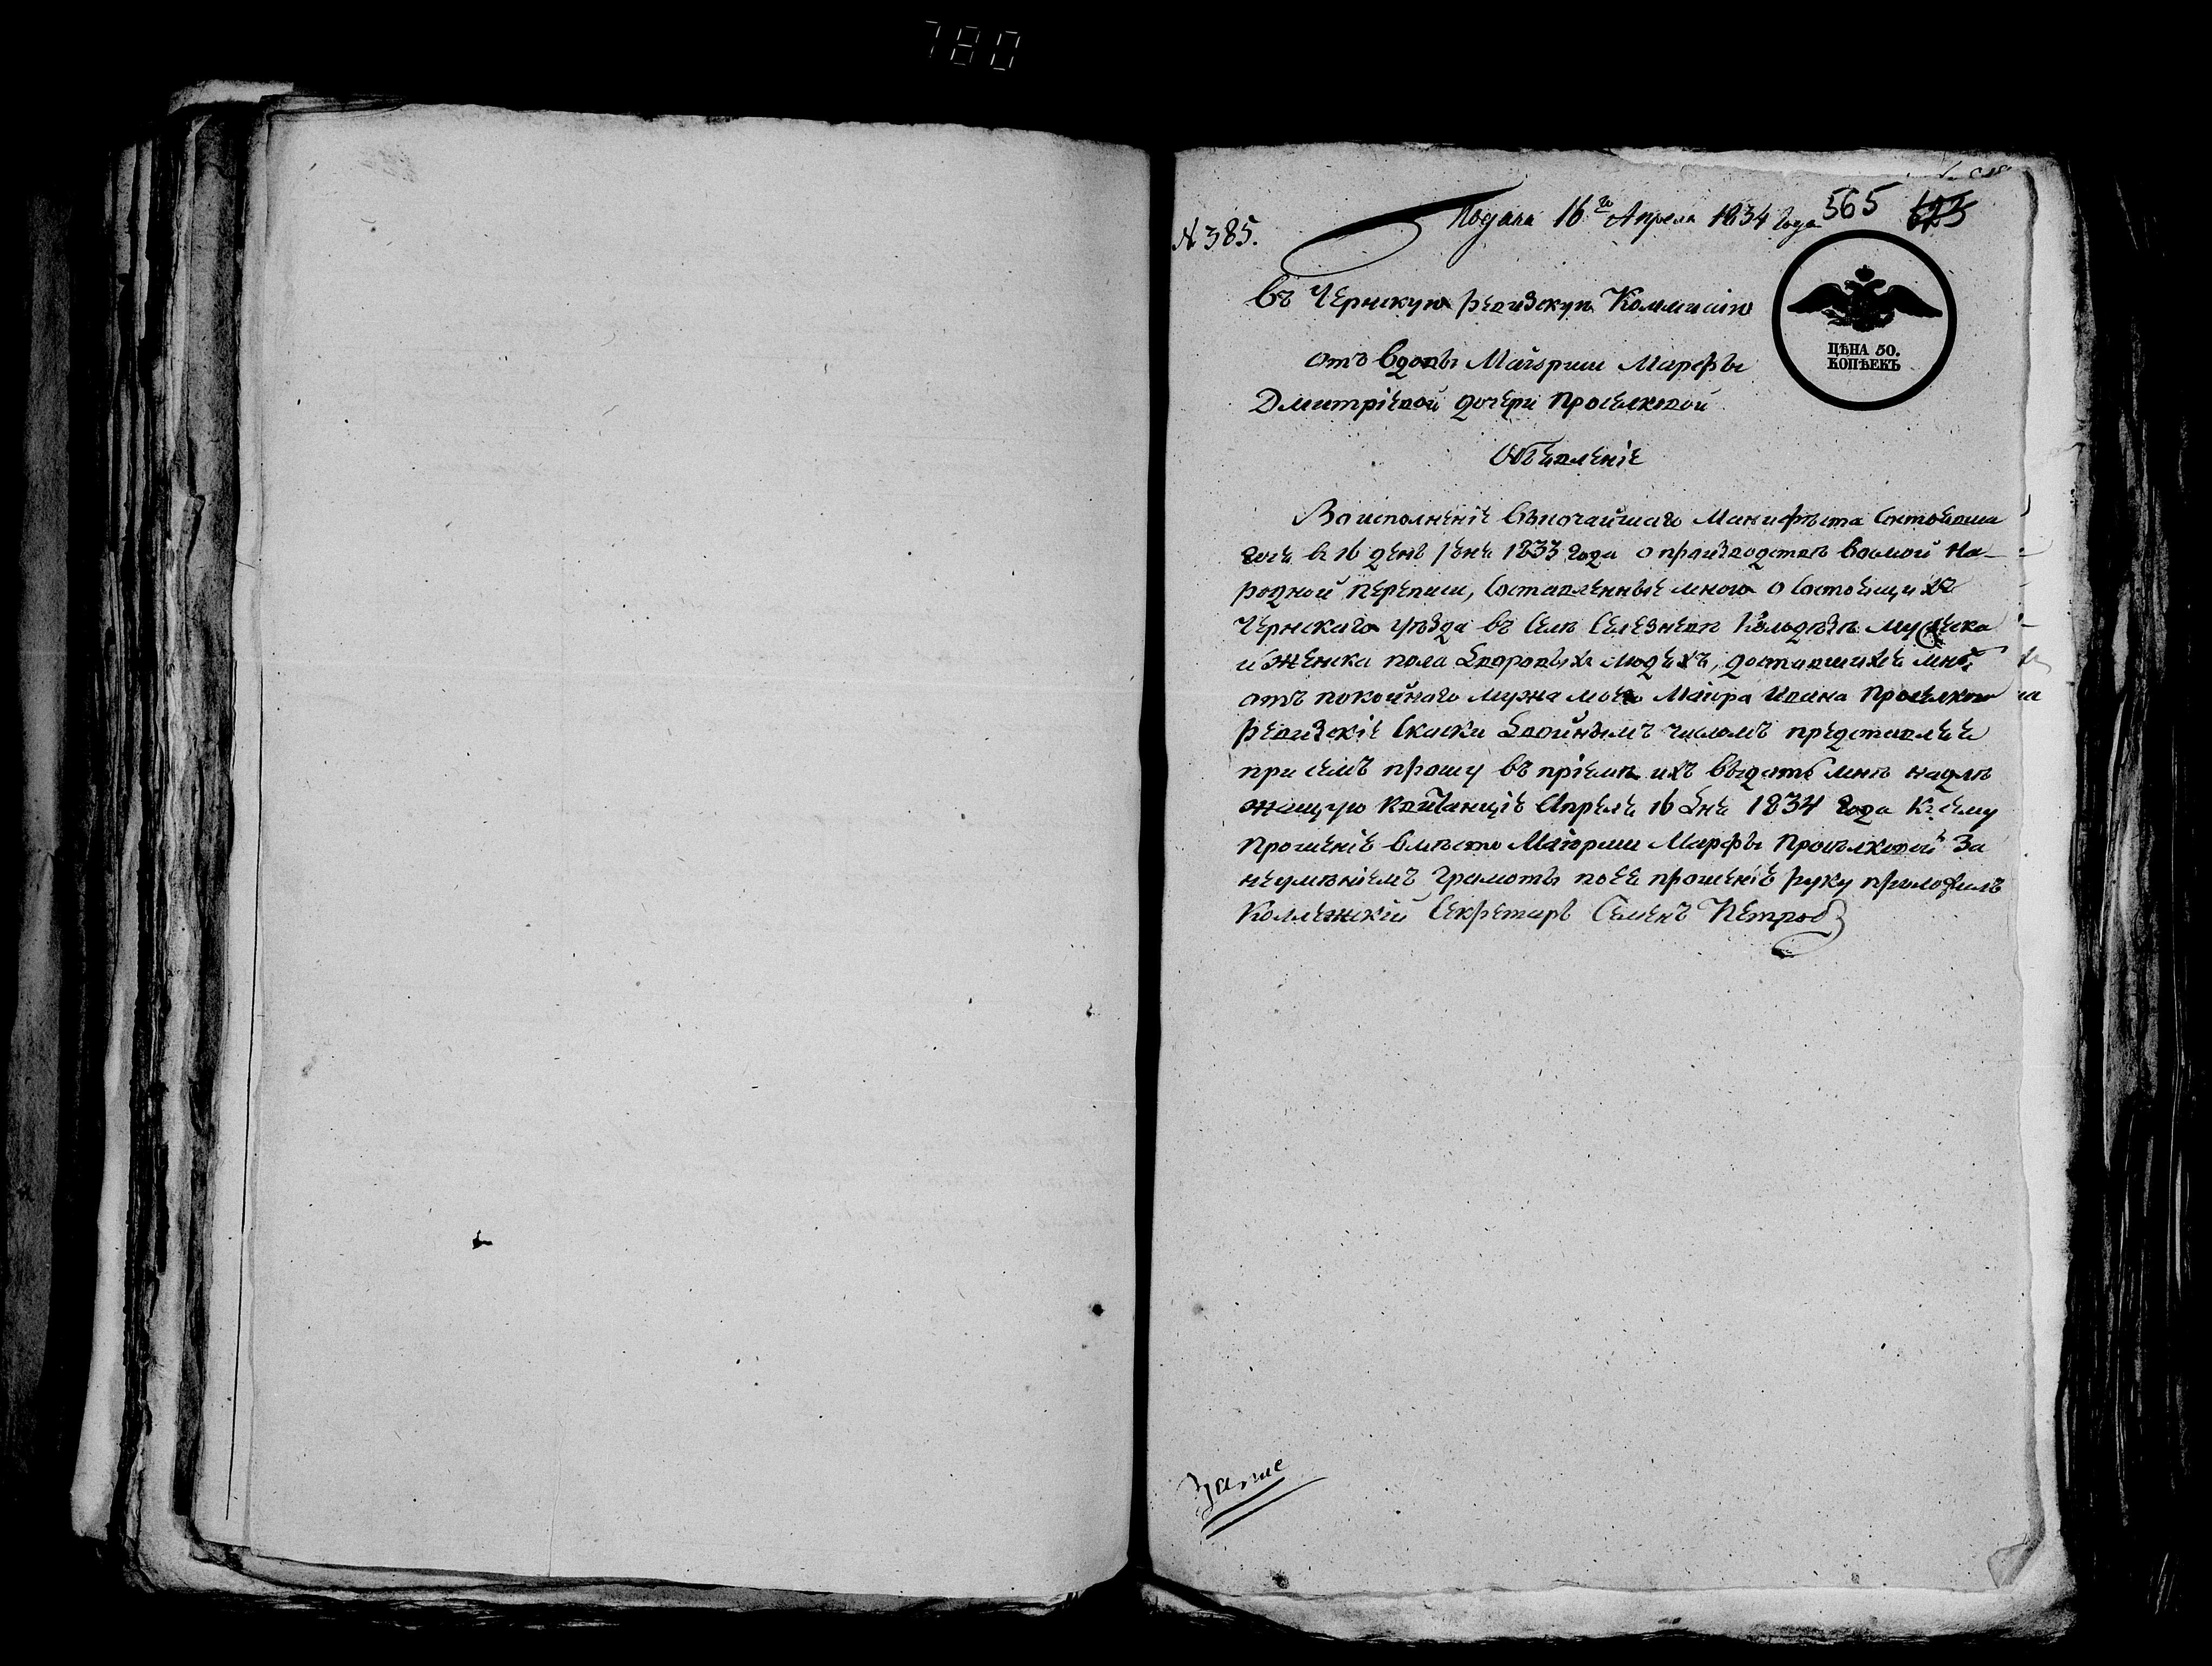 780
Подана 16го Апреля 1834 Года 565
№ 385.
Въ Чернскую ревизскую Коммисию
ЦѢНА 50.
КОПѢЕКЪ
отъ вдовы Маіорши Марфы
Дмитріевой дочери
Объявленіе
Во исполненіе высочайшаго Манифеста состоявша
гося в 16 день 1833 года о производстве восмой На-
родной переписи, составленные мною о состоящихъ
Чернскаго уѣзда въ Селѣ муҗеска
и женска пола дворовыхъ людяхъ, доставшихся мнѣ
отъ покойнаго мужа моего Маіора Ивана
Ревизскіе Скаски двойнымъ числомъ представляя
при семъ прошу въ пріемѣ ихъ выдать мнѣ надле
жащую квитанцію Апреля 16 дня 1834 года К сему
прошенію вместо Маіорши Марфы За
неумѣніемъ грамоты по ея прошенію руку приложилъ
Коллежскій Секретарь Семенъ Петров